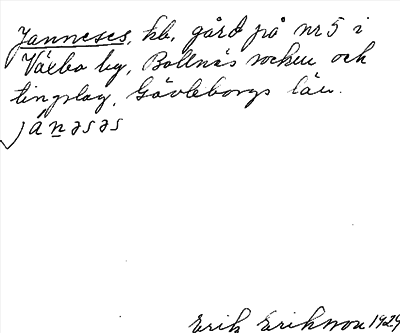 Janneses, kb, gård på nr 5 i
Växbo by, Bollnäs socken och
tingslag, Gävleborgs län.
jánəsəs
Erik Erikson 1929